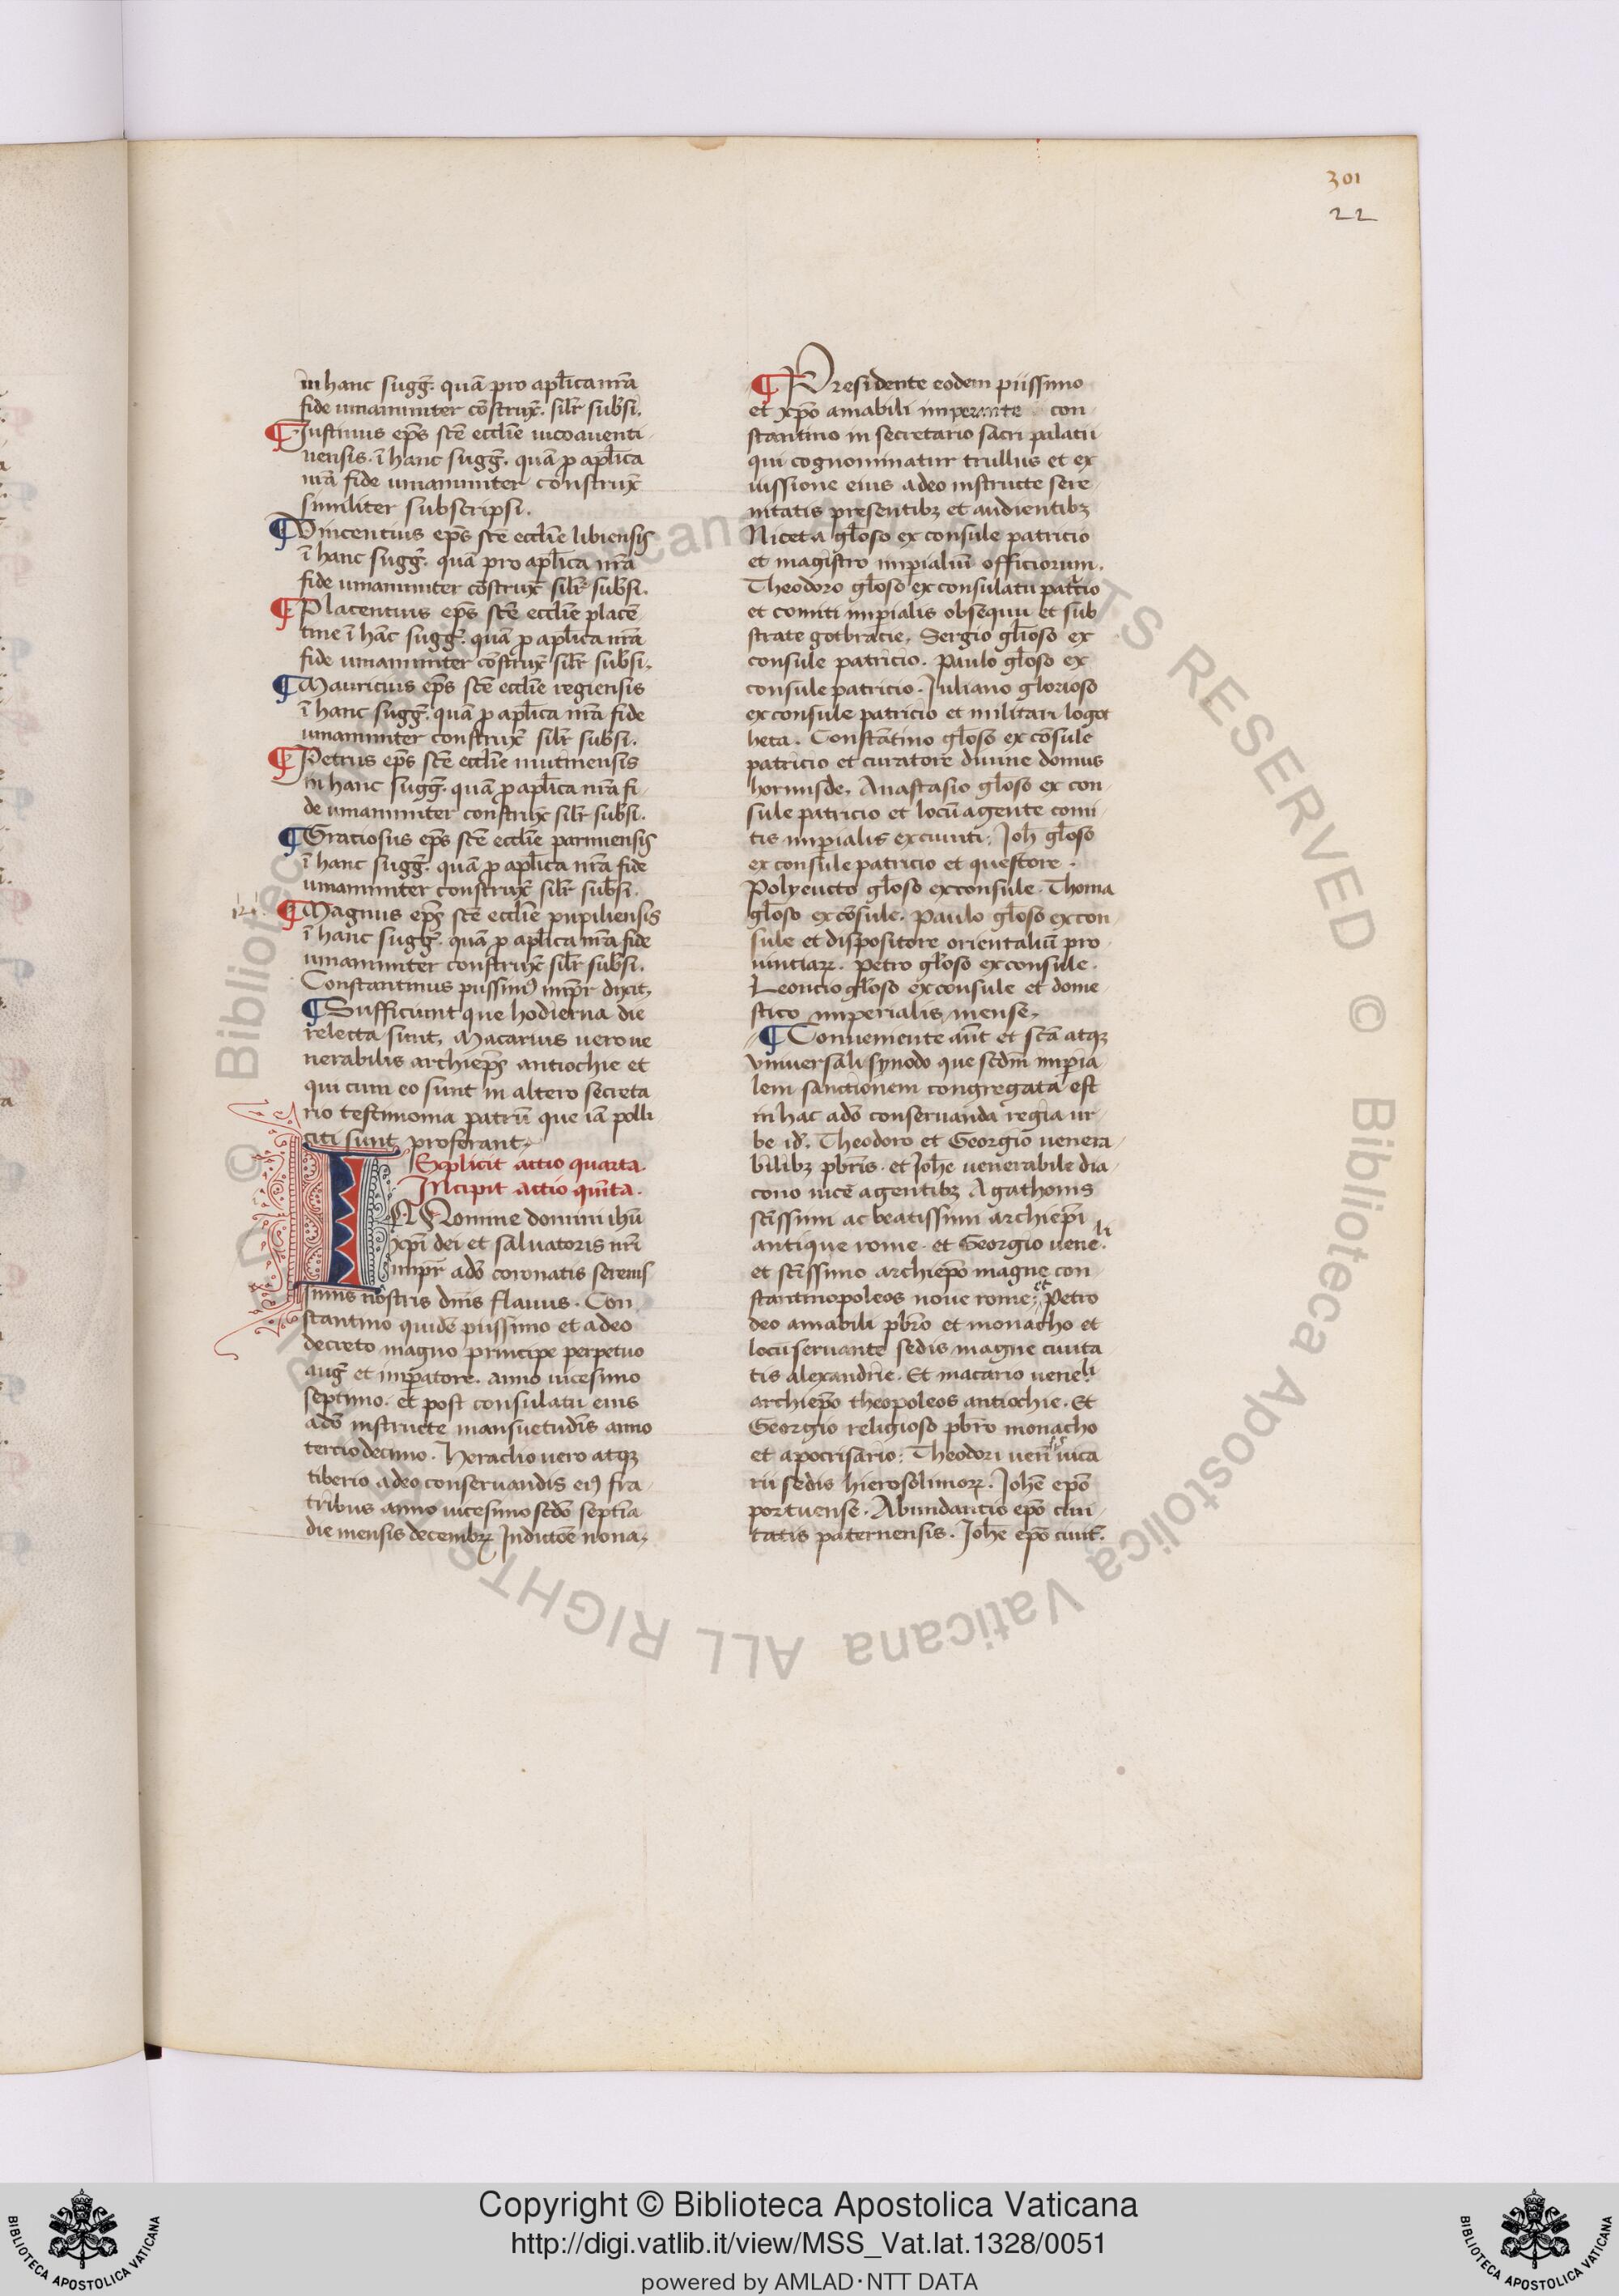 301
22
in hanc sugg̃. quã pro apl̃ica nr̃a
fide unanimiter cõstrux̃. sil̃r subsi.
¶ Iustinus ep̃s sc̃e eccl̃ie uicoauenti
nensis. ĩ hanc sugg̃. quã p apl̃ica
nr̃a fide unanimiter construx̃
similiter subscripsi.
¶ Vincentius ep̃s sc̃e eccl̃ie libiensis
ĩ hanc sugg̃. quã pro apl̃ica nr̃a
fide unanimiter cõstrux̃ sil̃r subsi.
¶ Placentius ep̃s sc̃e eccl̃ie placẽ
tine ĩ hãc sugg̃. quã p apl̃ica nr̃a
fide unanimiter cõstrux̃ sil̃r subsi.
¶ Mauricius ep̃s sc̃e eccl̃ie regiensis
ĩ hanc sugg̃. quã p apl̃ica nr̃a fide
unanimiter construx̃ sil̃r subsi.
¶ Petrus ep̃s sc̃e eccl̃ie mutinensis
in hanc sugg̃. quã p apl̃ica nr̃a fi
de unanimiter construx̃ sil̃r subsi.
¶ Gratiosus ep̃s sc̃e eccl̃ie parmensis
ĩ hanc sugg̃. quã p apl̃ica nr̃a fide
unanimiter construx̃ sil̃r subsi.
¶ Magnus ep̃s sc̃e eccl̃ie pupiliensis
ĩ hanc sugg̃. quã p apl̃ica nr̃a fide
unanimiter construx̃ sil̃r subsi.
Constantinus piissimꝰ imp̃r dixit.
¶ Sufficiunt que hodierna die
relecta sunt. Macarius uero ue
nerabilis archiep̃s antiochie et
qui cum eo sunt in altero secreta
rio testimonia patrũ que iã polli
citi sunt proferant.
Explicit actio quarta.
Incipit actio quĩta.
IN Nomine domini ihũ
xp̃i dei et saluatoris nr̃i
imp̃r adõ coronatis serenis
simis nostris dñis flauiis. Con
stantino quidẽ piissimo et adeo
decreto magno principe perpetuo
aug̃ et imp̃atore. anno uicesimo
septimo. et post consulatũ eius
adõ instructe mansuetudĩs anno
terciodecimo. Heraclio uero atqꝫ
tiberio adeo conseruandis eiꝰ fra
tribus anno uicesimo scd̃o septĩa
die mensis decembꝝ Indictõe nona.
¶ Presidente eodem piissimo
et xp̃o amabili imperante con
stantino in secretario sacri palatii
qui cognominatur trullus et ex
iussione eius adeo instructe sere
nitatis presentibꝫ et audientibꝫ
Niceta gl̃oso ex consule patricio
et magistro imp̃ialiũ officiorum.
Theodoro gl̃oso ex consulatu pat̃cio
et comiti imp̃ialis obsequii et sub
strate gotbracie. Sergio gl̃ioso ex
consule patricio. Paulo gl̃oso ex
consule patricio. Iuliano glorioso
ex consule patricio et militari logot
heta. Constãtino gl̃oso ex cõsule
patricio et curatore diuine domus
hormisde. Anastasio gl̃oso ex con
sule patricio et locũ agente comi
tis imp̃ialis excuuiti. Ioh̃ gl̃oso
ex consule patricio et questore.
Polyeucto gl̃oso exconsule. Thoma
gl̃oso excõsule. Paulo gl̃oso excon
sule et dispositore orientaliũ pro
uinciaꝝ. Petro gl̃oso exconsule.
Leoncio gl̃oso exconsule et dome
stico imperialis mense.
¶ Conueniente aũt et sc̃a atqꝫ
vniuersali synodo que scd̃m imp̃ia
lem sanctionem congregata est
in hac adõ conseruanda regia ur
be id̃. Theodoro et Georgio uenera
bilibꝫ pbr̃is. et Ioh̃e uenerabile dia
cono uicẽ agentibꝫ Agathonis
sc̃issimi ac beatissimi archiep̃i
antique rome. et Georgio veneli
et sc̃issimo archiep̃o magne con
stantinopoleos noue rome. et Petro
deo amabili pbr̃o et monacho et
locũ seruante sedis magne ciuita
tis alexandrie. Et macario veneli
archiep̃o theopoleos antiochie. Et
Georgio religioso pbr̃o monacho
et apocrisario. Theodori uen̄ uica
rii sedis hierosolimoꝝ. Ioh̃e ep̃o
portuense. Abundantio ep̃o ciui
tatis paternensis. Ioh̃e ep̃o ciuit̃.
Copyright © Biblioteca Apostolica Vaticana
http://digi.vatlib.it/view/MSS_Vat.lat.1328/0051
powered by AMLAD·NTT DATA
BIBLIOTECA APOSTOLICA VATICANA
BIBLIOTECA APOSTOLICA VATICANA